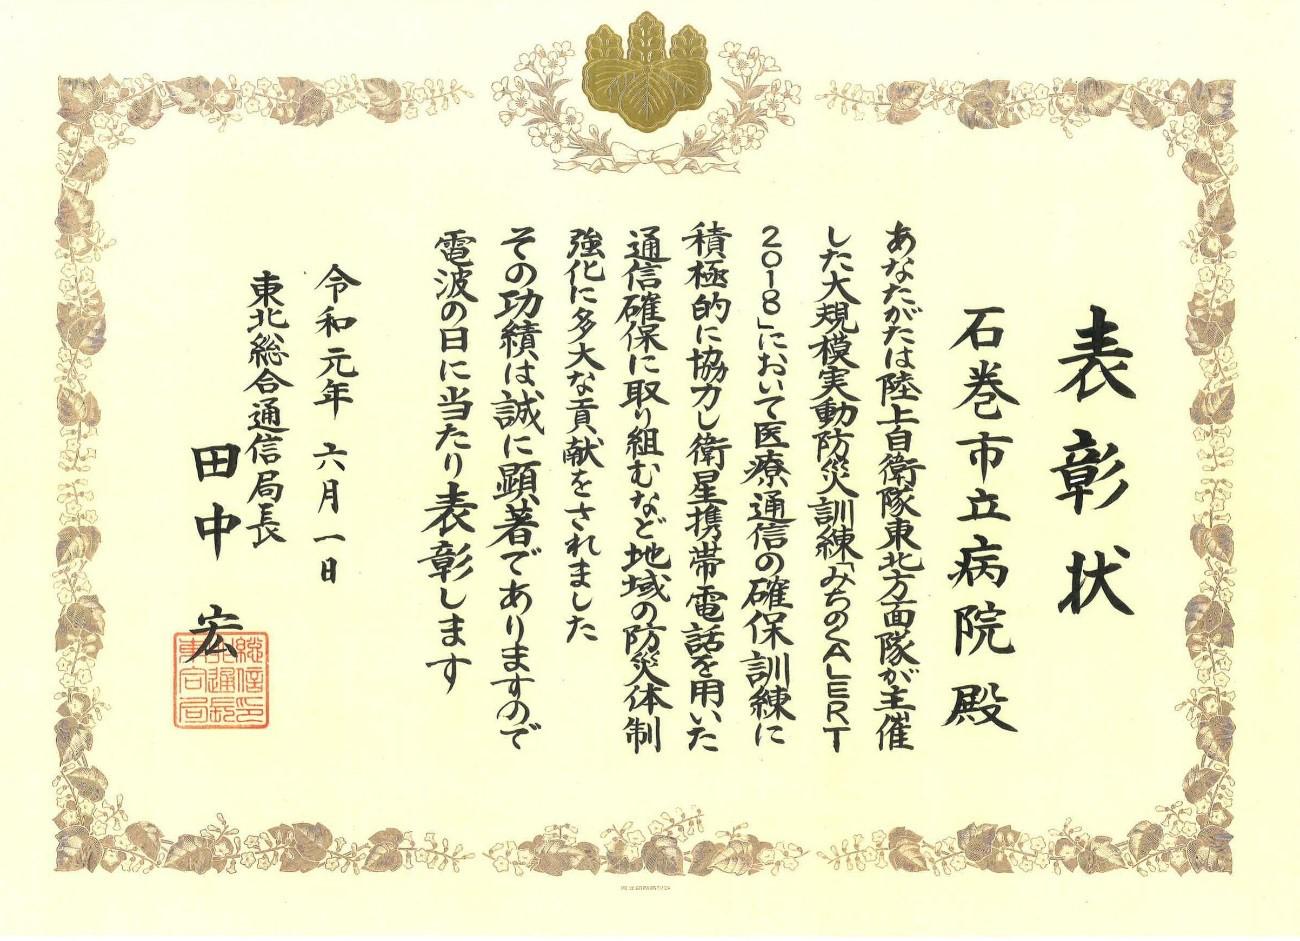 表彰状
石巻市立病院殿
あなたがたは陸上自衛隊東北方面隊が主催
した大規模実動防災訓練「みちのくALERT
2018」において医療通信の確保訓練に
積極的に協力し衛星携帯電話を用いた
通信確保に取り組むなど地域の防災体制
強化に多大な貢献をされました
その功績は、誠に顕著でありますので
電波の日に当たり表彰します
令和元年六月一日
東北総合通信局長
田中宏